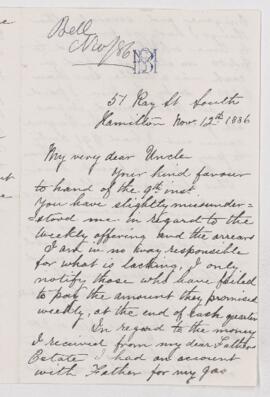 Bell
Nov/86
57 Ray St South
Hamilton Nov. 12th 1886
My very dear Uncle
Your kind favour
to hand of the 9th inst.
You have slightly missunder-
stood me in regard to the
weekly offering and the arrears
I am in no way responsible
for what is lacking, I only
notify those who have failed
to pay the amount they promised
weekly, at the end of each quarter
In regard to the money
I received from my dear Fathers
Estate I had an account
with Father for my gas